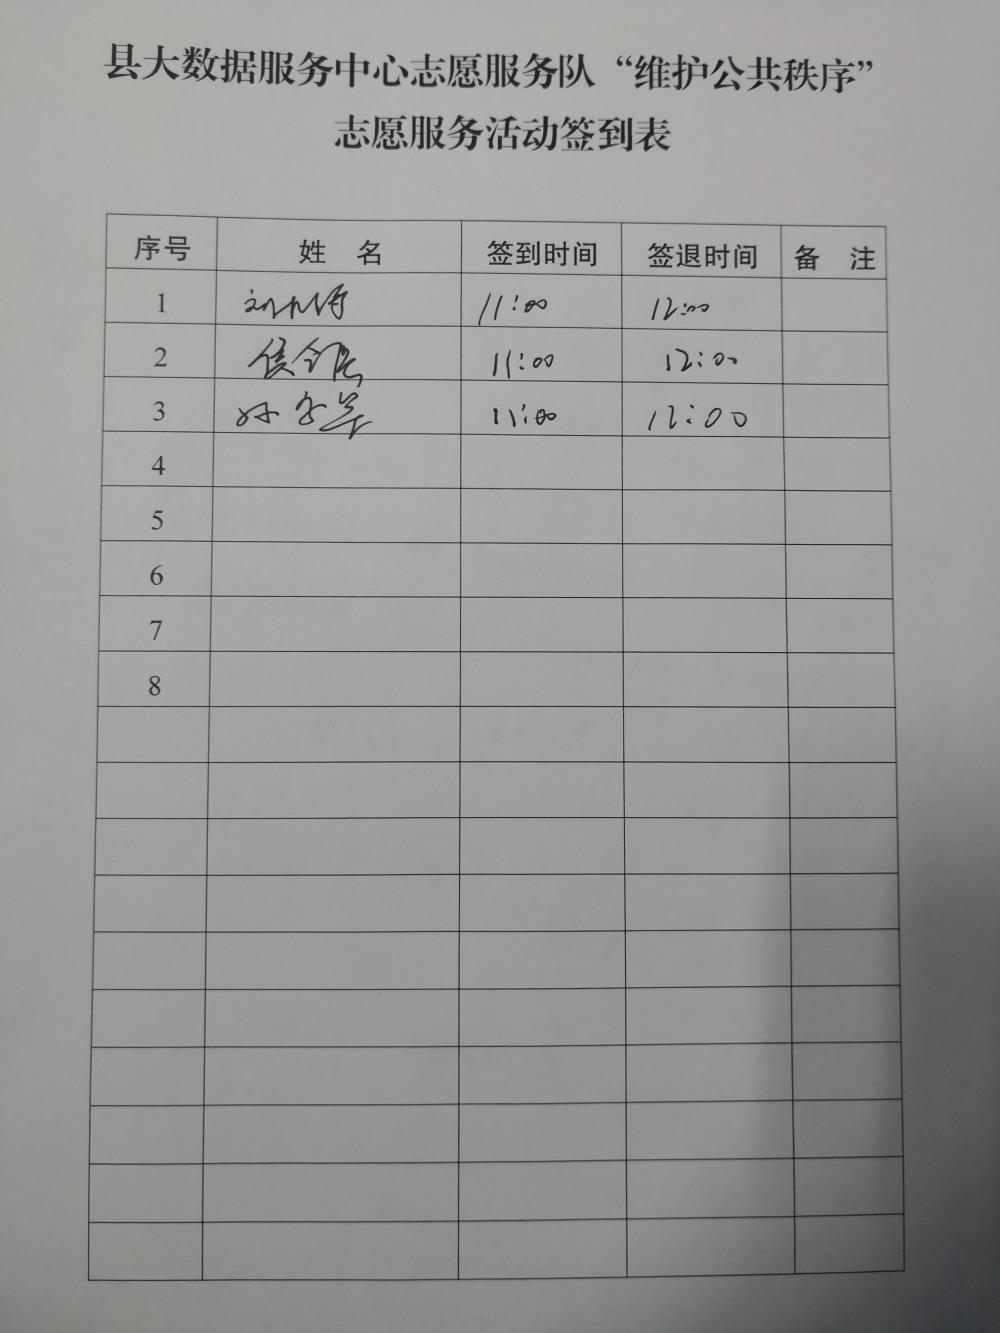 县大数据服务中心志愿服务队“维护公共秩序”
志愿服务活动签到表
序号 姓 名 签到时间 签退时间 备 注
1 11:00 12:00
2 11:00 12:00
3 11:00 12:00
4
5
6
7
8